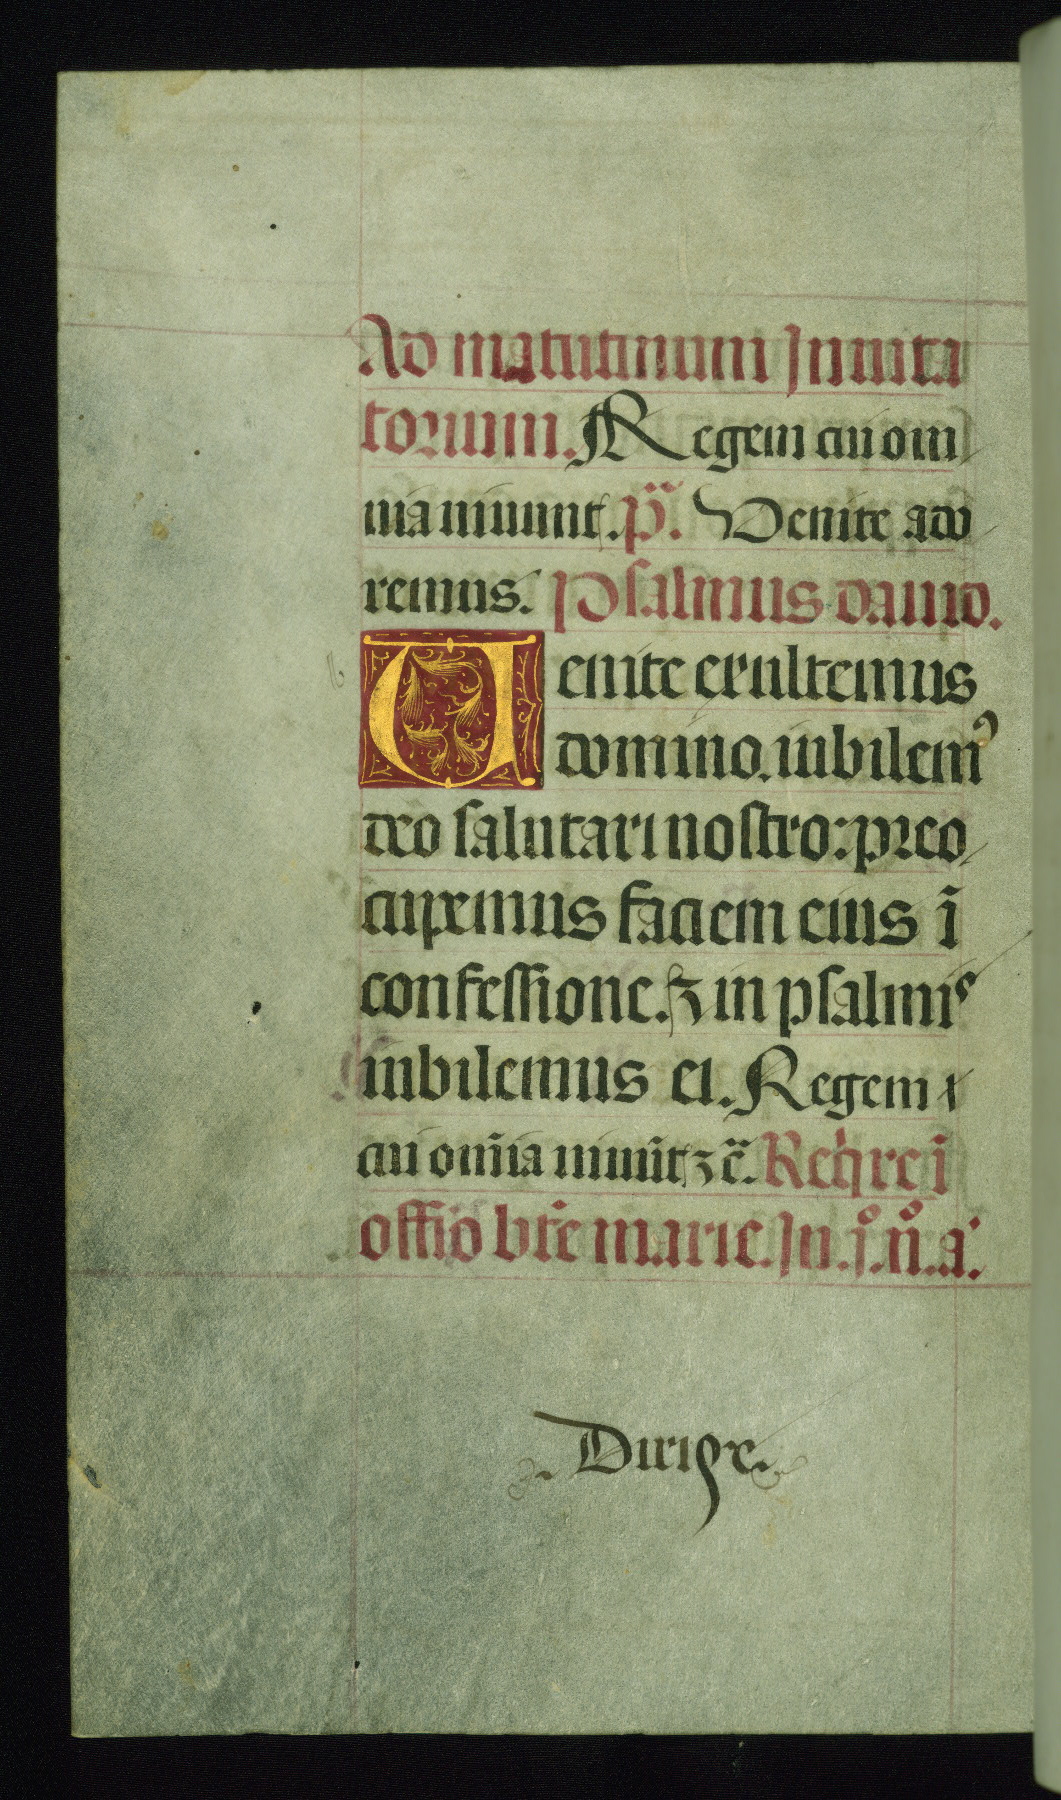 Ad matutinum Inuita
torium. Regem cui om
nia uiuunt. p̃. Venite ado
remus. Psalmus dauid.
Uenite exultemus
domino. iubilemꝰ
deo salutari nostro: preo
cupemus faciem eius ĩ
confessione. ⁊ in psalmis
iubilemus ei. Regem
cui om̃ia uiuũt ⁊c̃. Reqͥre ĩ
offiõ bt̃e marie. In .jͦ. nͦ. a.
. Dirige.